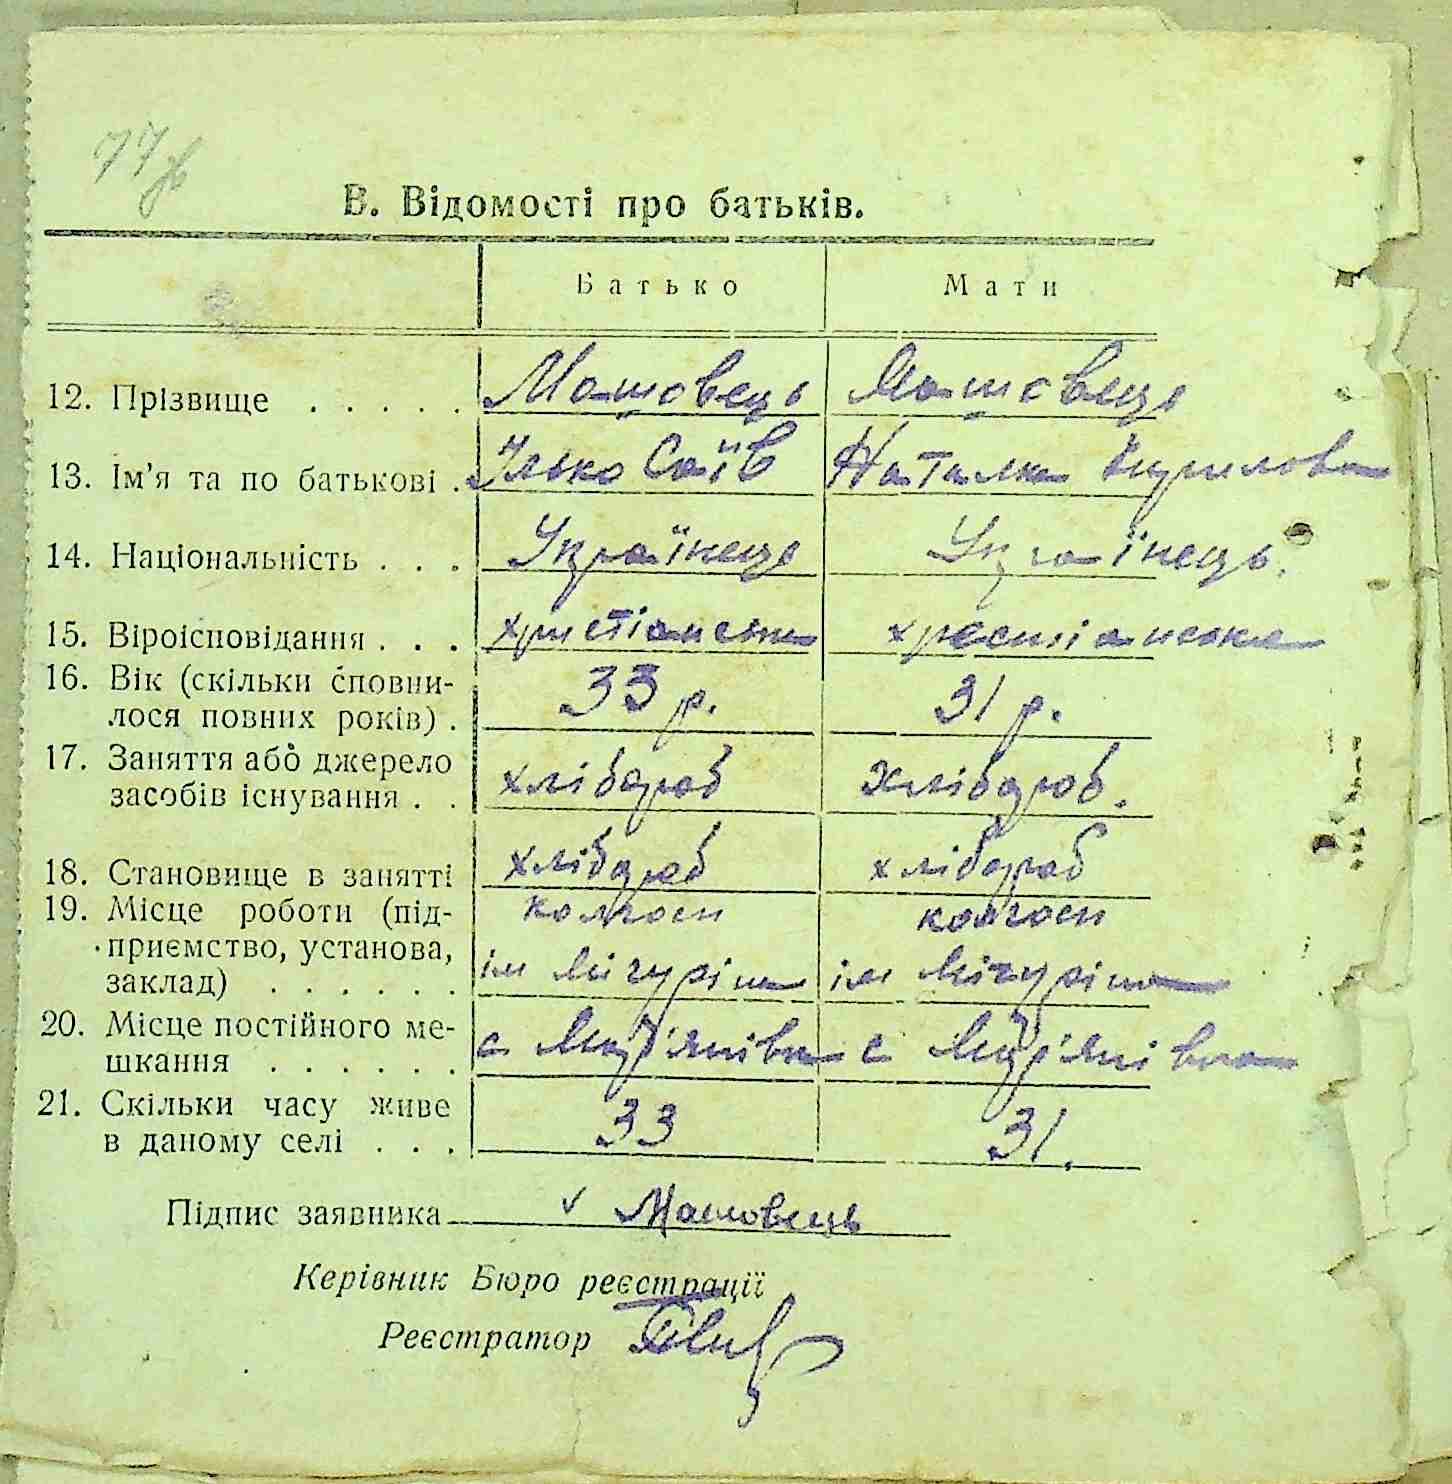 77
В. Відомості про батьків.
Батько Мати
12. Прізвище . . . . . Машовець Машовець
13. Ім'я та по батькові . Ілько Саїв Наталка Кирилова
14. Національність . . . Українець Українець.
15. Віроісповідання . . . християнська
16. Вік (скільки сповни-
лося повних років) . 33 р. 31 р.
17. Заняття або джерело
засобів існування . . хлібороб хлібороб.
18. Становище в занятті хлібороб хлібороб
19. Місце роботи (під- колгосп колгосп
приємство, установа,
заклад) . . . . . . ім Мічуріна ім Мічуріна
20. Місце постійного ме-
шкання . . . . . . с с
21. Скільки часу живе
в даному селі . . . 33 31.
Підпис заявника v Машовець
Керівник Бюро реєстрації
Реєстратор